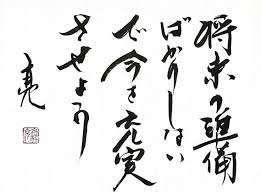 将来の準備
ばかりしない
で今を充実
させよう
亮